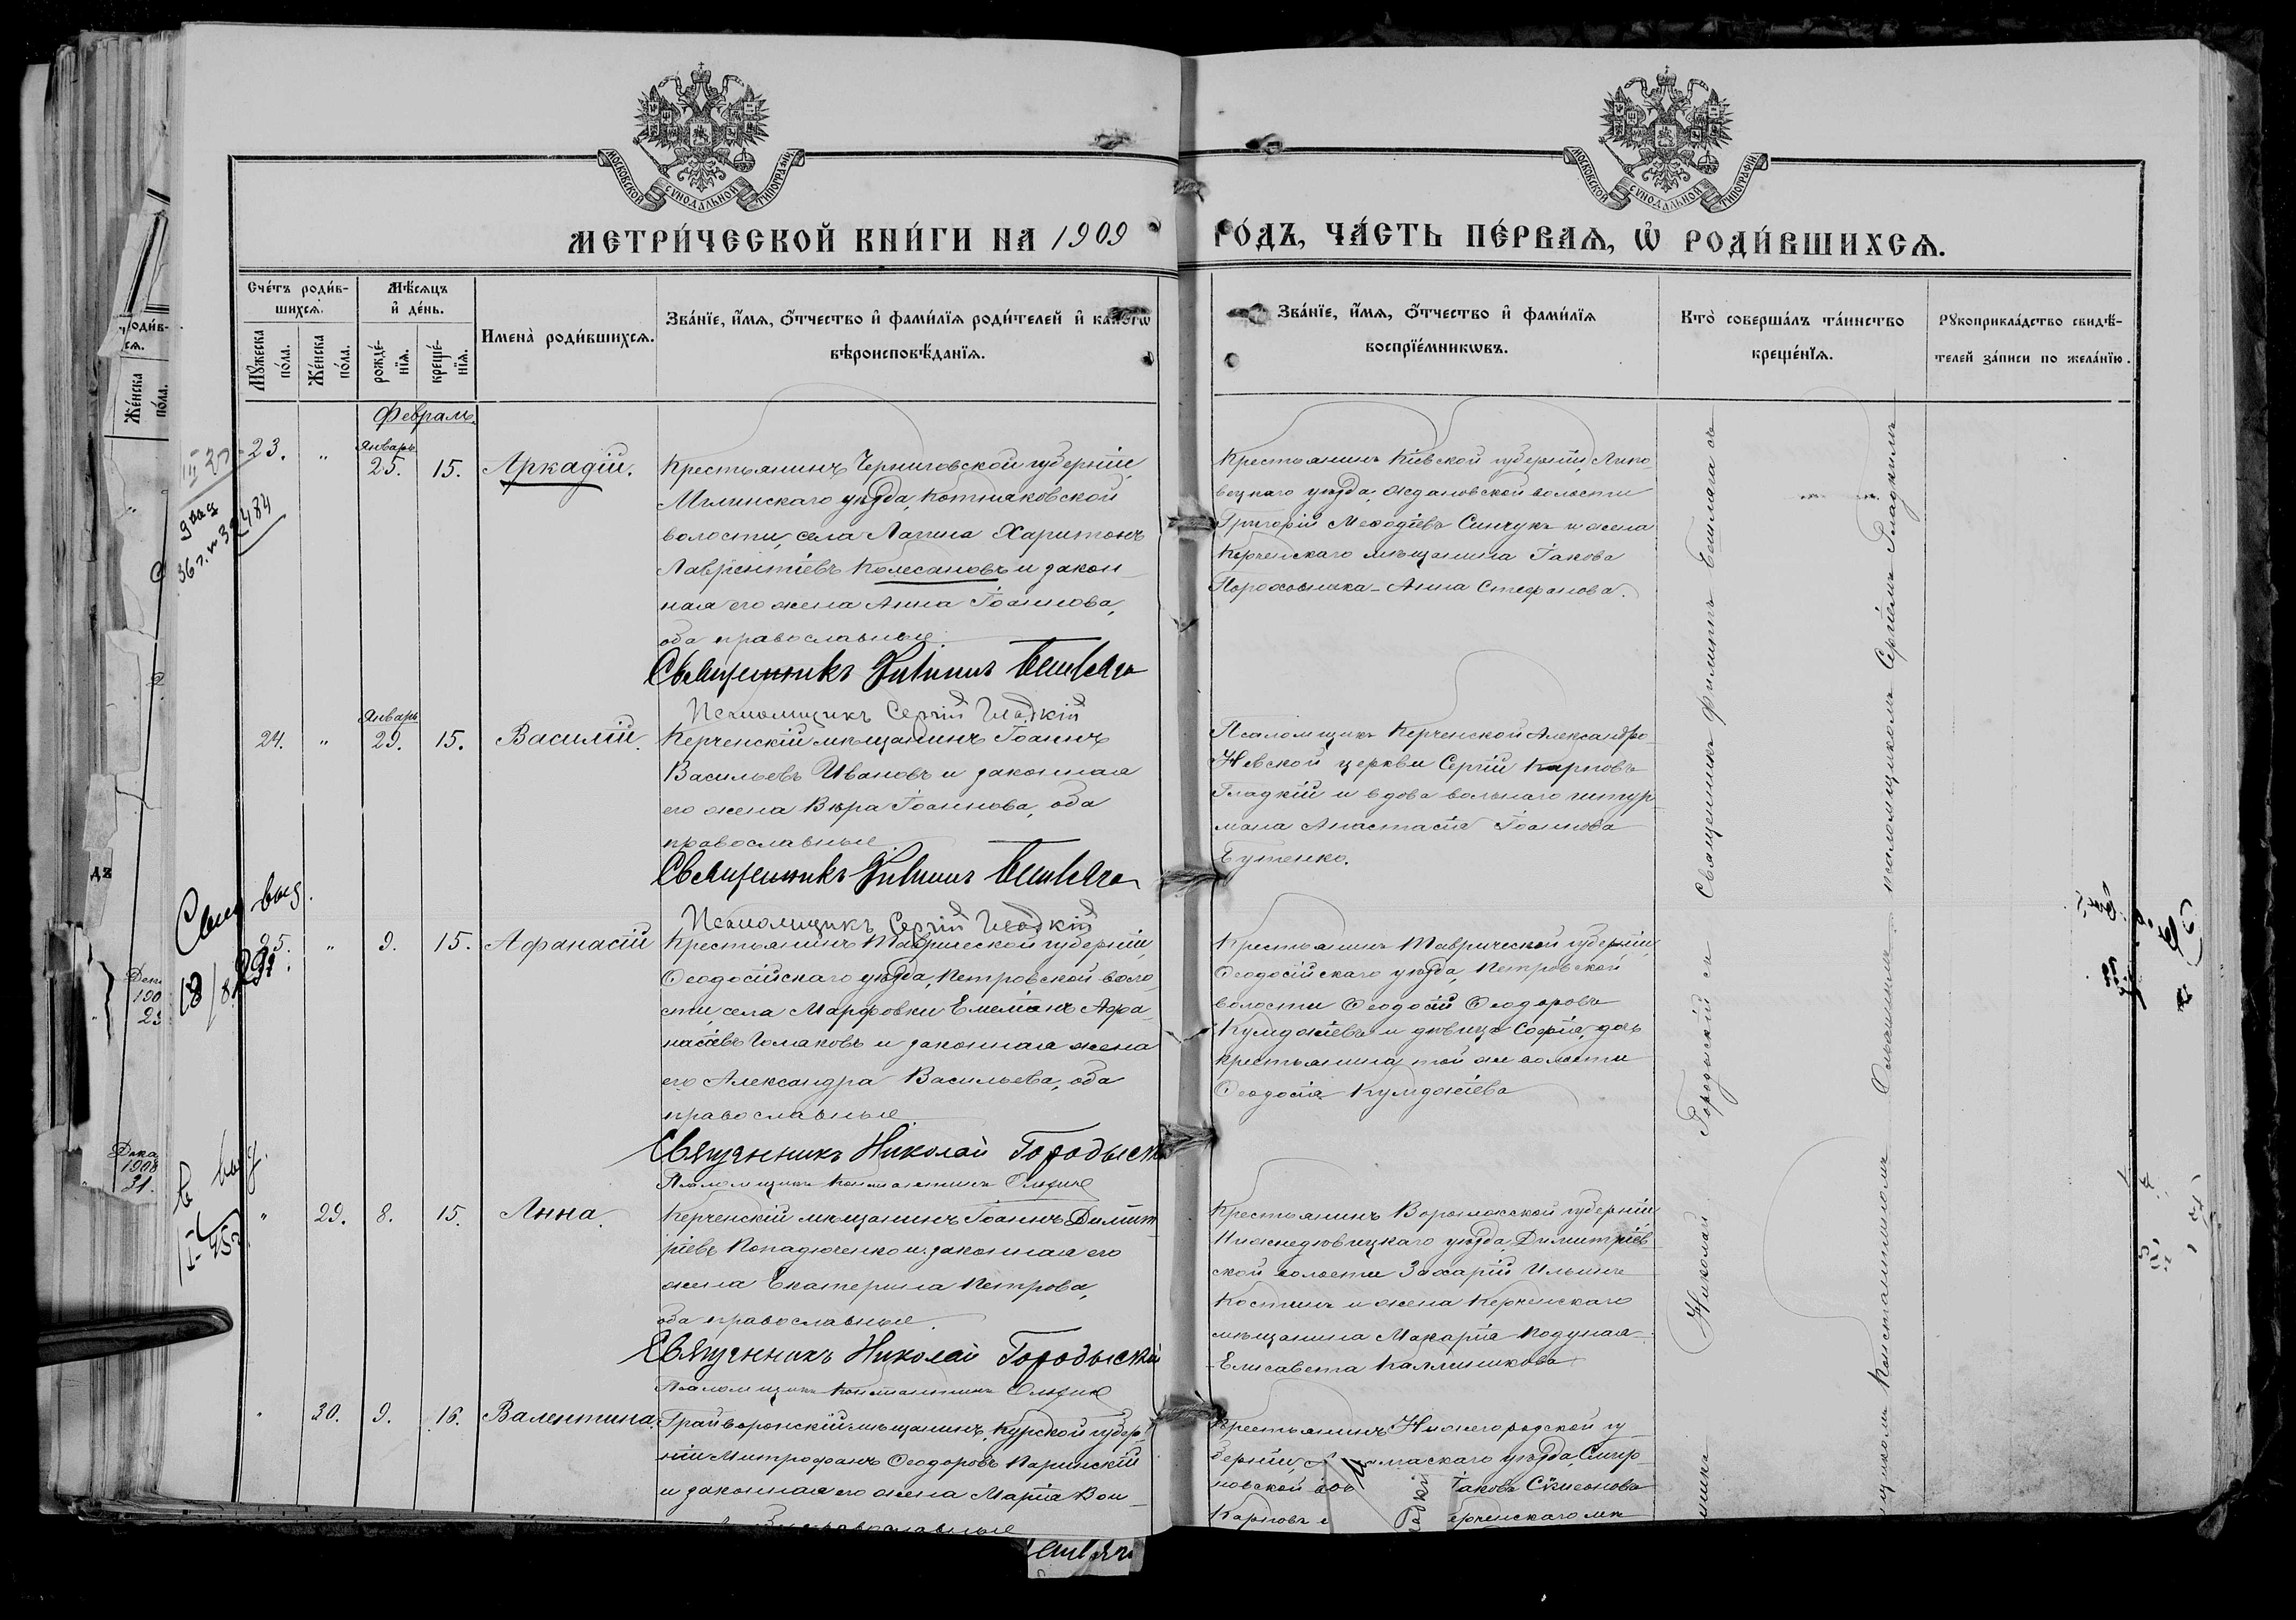 МОСКОВСКОЙ СУНОДАЛЬНОЙ ТИПОГРАФІИ
МОСКОВСКОЙ СУНОДАЛЬНОЙ ТИПОГРАФІИ
МЕТРИ́ЧЕСКОЙ КНИ́ГИ НА 1909
ГО́ДЪ, ЧА́СТЬ ПЕ́РВАЯ, Ѡ҆ РОДИ́ВШИХСЯ.
Сче́тъ роди́в-
шихся.
Мꙋ́жеска
по́ла.
Же́нска
по́ла.
Мѣ́сяцъ
и҆ де́нь.
рожде́-
нїя.
креще́-
нїя.
Имена̀ роди́вшихся.
Зва́нїе, и҆́мя, ѻ҆́тчество и҆ фами́лїя роди́телей и҆ како́гѡ
вѣроисповѣ́данїя.
Зва́нїе, и҆́мя, ѻ҆́тчество и҆ фами́лїя
воспрїе́мникѡвъ.
Кто̀ соверша́лъ та́инство
креще́нїя.
Рꙋкоприкла́дство свидѣ́-
телей за́писи по жела́нїю.
Февраль.
23.
"
Январь
25.
15.
Аркадій.
Крестьянинъ Черниговской губерніи,
Мглинскаго уѣзда, Котляковской
волости, села Лапина Харитонъ
Лаврентіевъ Колесановъ и закон-
ная его жена Анна Іоаннова,
оба православные.
Священникъ Филиппъ Бешляга
Псаломщикъ Сергій Гладкій
Крестьянинъ Кіевской губерніи, Липо-
вецкаго уѣзда, Ждановской волости
Григорій Меѳодіевъ Синчукъ и жена
Керченскаго мѣщанина Іакова
Пороховника - Анна Стефанова.
24.
"
Январь
29.
15.
Василій.
Керченскій мѣщанинъ Іоаннъ
Васильевъ Ивановъ и законная
его жена Вѣра Іоаннова, оба
православные.
Священникъ Филиппъ Бешляга
Псаломщикъ Сергій Гладкій
Псаломщикъ Керченской Александро-
Невской церкви Сергій Карповъ
Гладкій и вдова вольнаго штур-
мана Анастасія Іоаннова
Бутенко.
25.
"
9.
15.
Афанасій
Крестьянинъ Таврической губерніи,
Ѳеодосійскаго уѣзда, Петровской воло-
сти, села Марфовки Емеліанъ Афа-
насіевъ Чолаковъ и законная жена
его Александра Васильева, оба
православные
Священникъ Николай Городыскій
Псаломщикъ Константинъ
Крестьянинъ Таврической губерніи,
Ѳеодосійскаго уѣзда, Петровской
волости Ѳеодосій Ѳеодоровъ
Кумджіевъ и дѣвица Софія, дочь
крестьянина той же волости
Ѳеодосія Кумджіева
"
29.
8.
15.
Анна.
Керченскій мѣщанинъ Іоаннъ Димит-
ріевъ Попадюченко и законная его
жена Екатерина Петрова,
оба православные.
Священникъ Николай Городыскій
Псаломщикъ Константинъ
Крестьянинъ Воронежской губерніи
Нижнедѣвицкаго уѣзда, Димитріев-
ской волости Захарій Ильинъ
Костинъ и жена Керченскаго
мѣщанина Макарія Кодуная -
Елисавета Каллиникова
"
30.
9.
16.
Валентина.
Грайворонскій мѣщанинъ, Курской губер-
ніи Митрофанъ Ѳеодоровъ Паринскій
и законная его жена Марія Вои-
православные
Крестьянинъ Нижегородской гу-
берніи, маскаго уѣзда, Смир-
новской Іакова Сѵмеонова
Карповъ ерченскаго мѣ
Священникъ Филиппъ Бешляга съ
псаломщикомъ Сергіемъ Гладкимъ
Николай Городыскій съ
псаломщикомъ Константиномъ